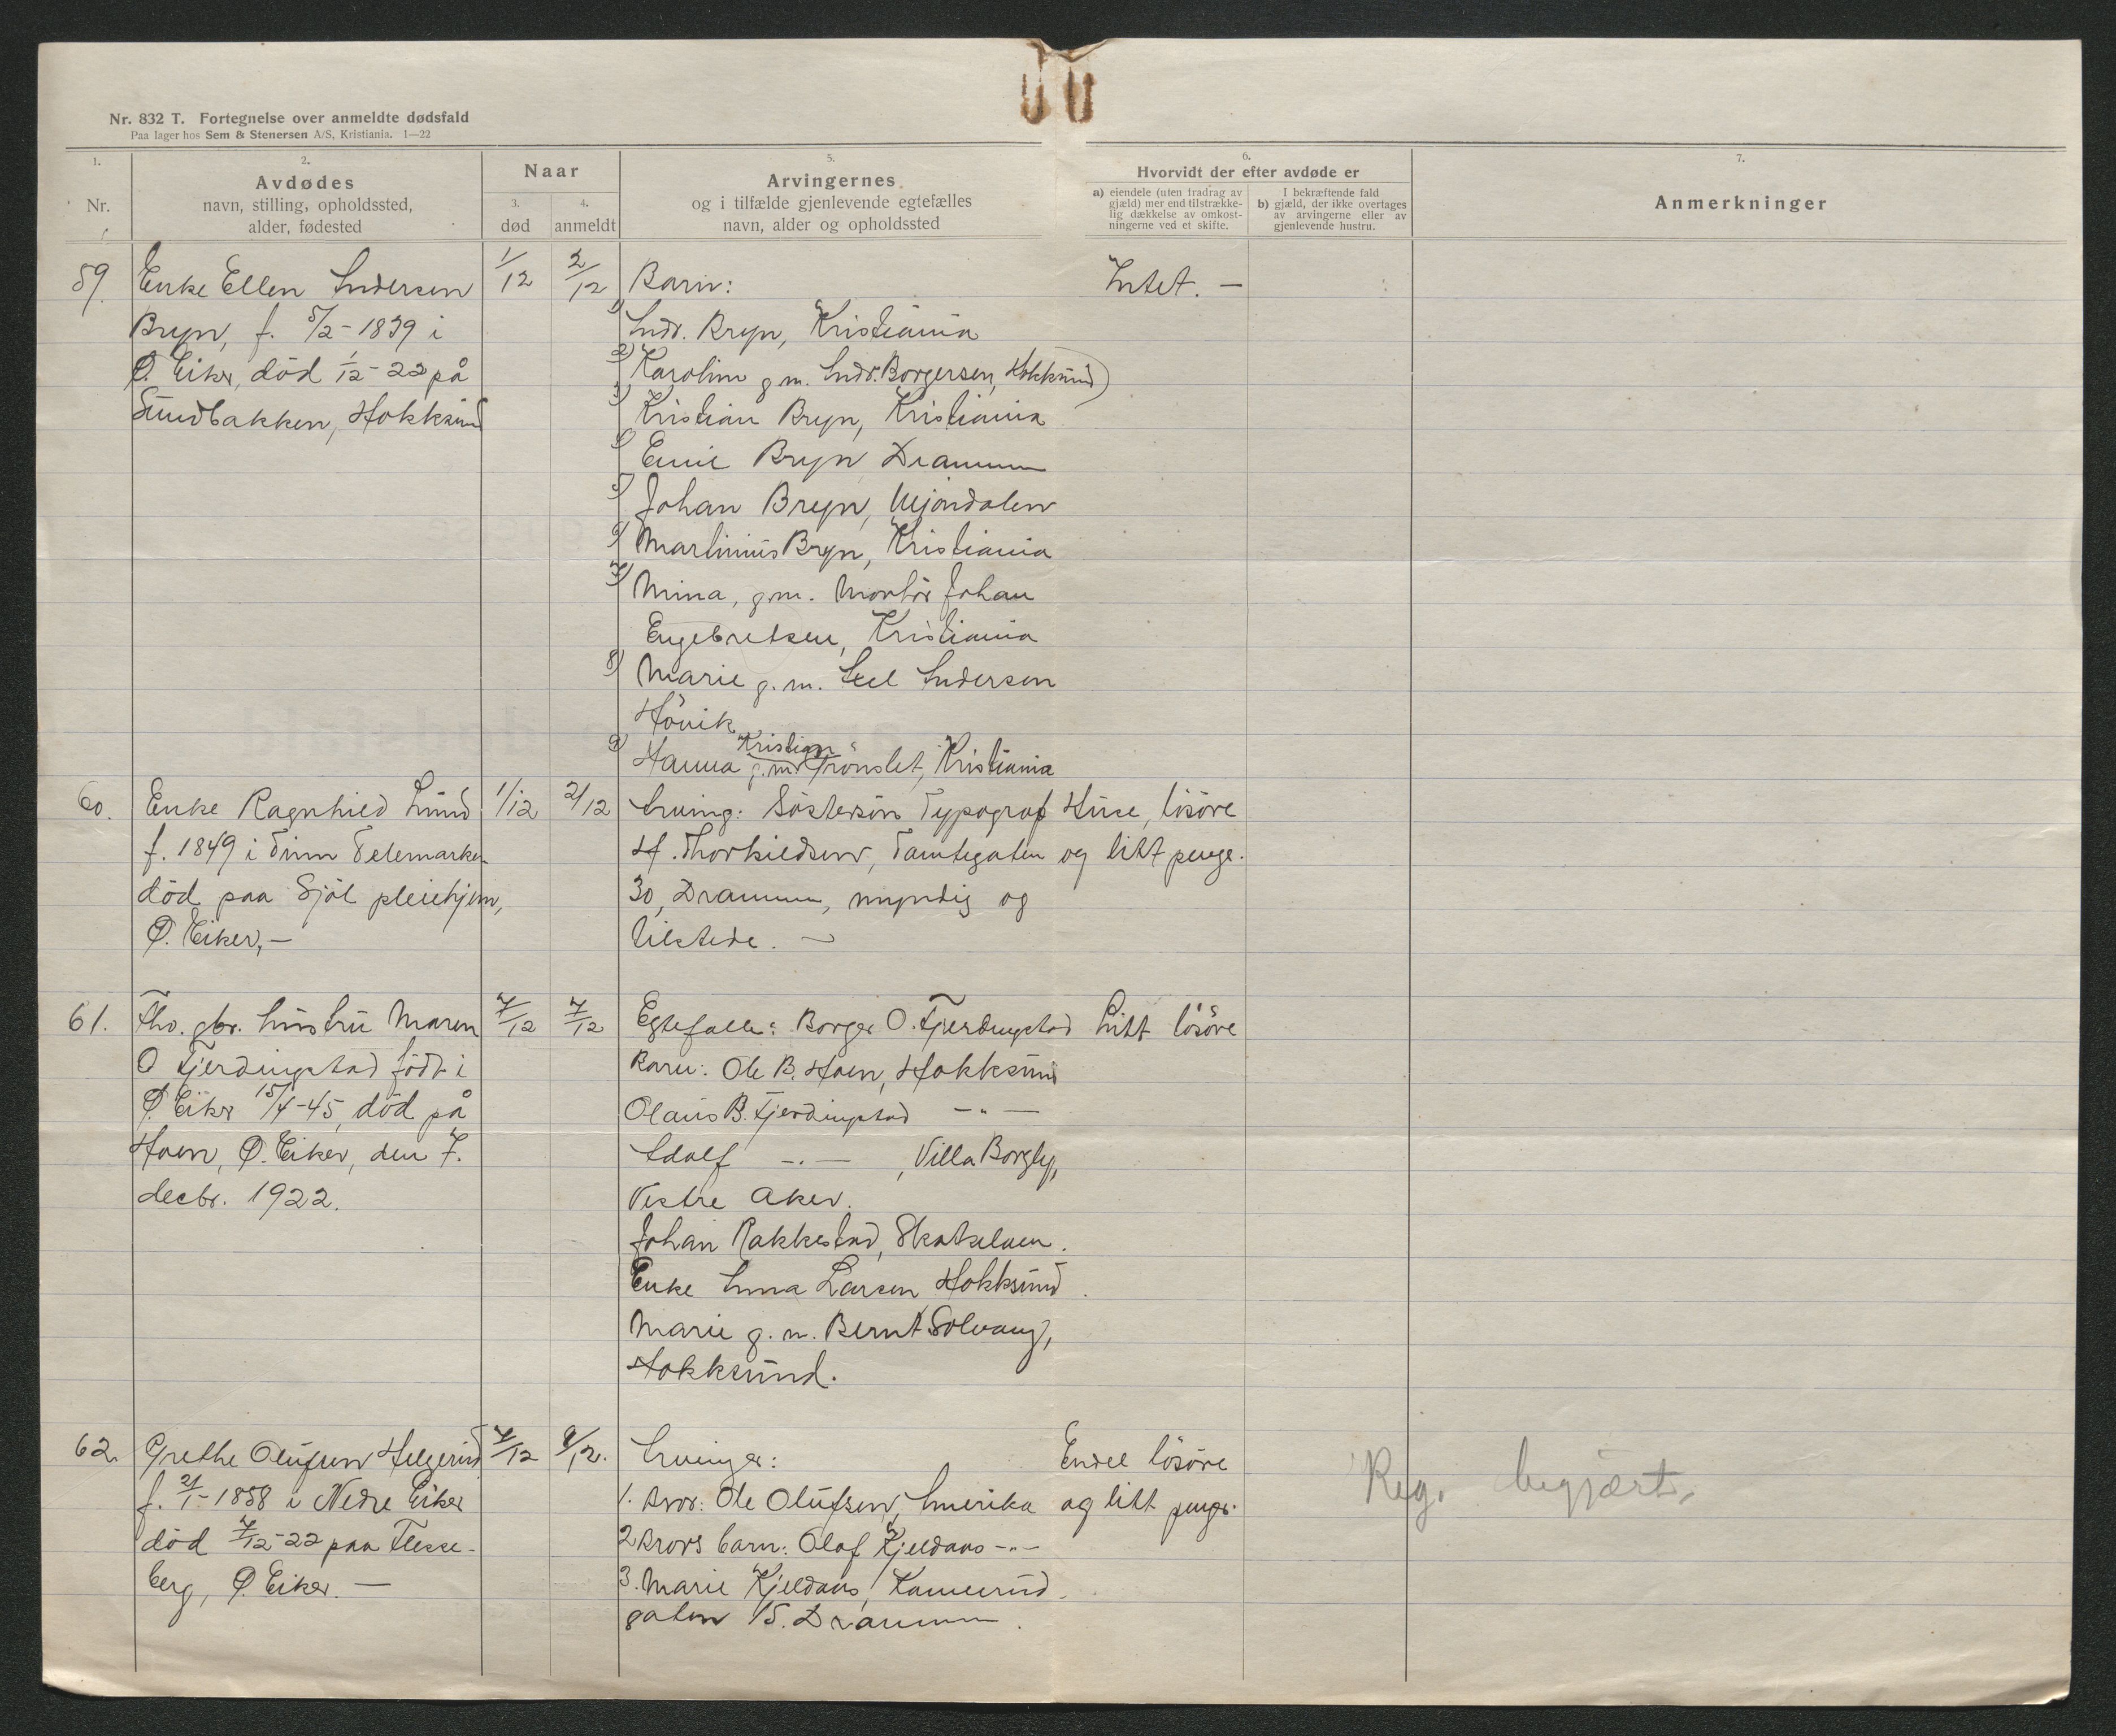 Nr. 832 T. Fortegnelse over anmeldte dødsfald
Paa lager hos Sem & Stenersen A/S, Kristiania. 1—22
1.
Nr.
2.
Avdødes
navn, stilling, opholdssted,
alder, fødested
Naar
3.
død
4.
anmeldt
5.
Arvingernes
og i tilfælde gjenlevende egtefælles
navn, alder og opholdssted
6.
Hvorvidt der efter avdøde er
a) eiendele (uten fradrag av
gjæld) mer end tilstrække-
lig dækkelse av omkost-
ningerne ved et skifte.
I bekræftende fald
b) gjæld, der ikke overtages
av arvingerne eller av
gjenlevende hustru.
7.
Anmerkninger
59. Enke Ellen Andersen 1/12 2/12 Barn: Intet. —
Bryn, f. 5/2-1839 i
Ø. Eiker, död 1/12-22 på
Sundbakken, Hokksund
1) Andr. Bryn, Kristiania
2) Karoline g.m. Andr. Borgersen, Hokksund
3) Kristian Bryn, Kristiania
4) Emil Bryn Drammen
5) Johan Bryn, Mjöndalen
6) Martinius Bryn, Kristiania
7) Mina, g.m. Montör Johan
Engebretsen, Kristiania
8) Marie g.m. Axel Andersen
Hövik
9) Hanna g.m. Kristian Trönslet, Kristiania
60. Enke Ragnhild Lund 1/12 2/12 Arving: Söstersön Typograf Huse, lösöre
f. 1849 i Tinn Telemarken H. Thorkildsen, Tamtegaten og litt penge.
död paa Sjöl pleiehjem, 30, Drammen, myndig og
Ø. Eiker, — tilstede. —
61. Fhv. gbr. hustru Maren 7/12 7/12 Egtefælle: Borger O. Fjerdingstad Litt lösöre
O Fjerdingstad födt i Barn: Ole B. Hoen, Hokksund
Ø. Eiker 15/4-45, död på Olaus B. Fjerdingstad —"—
Hoen, Ø. Eiker, den 7. Adolf —"—, Villa Borgly,
decbr. 1922. Vestre Aker.
Johan Rakkestad, Skotselven.
Enke Anna Larsen Hokksund.
Marie g.m. Bernt Solvang,
Hokksund.
62. Grethe Olufsen Helgerud 7/12 9/12. Arvinger: Endel lösöre
f. 21/1-1858 i Nedre Eiker 1. Bror: Ole Olufsen, Amerika og litt penger. Reg. begjært.
död 7/12-22 paa Flesse- 2 Brors barn: Olaf Kjeldaas —"—
berg, Ø. Eiker. — 3. Marie Kjeldaas,
gaten 15. Drammen.